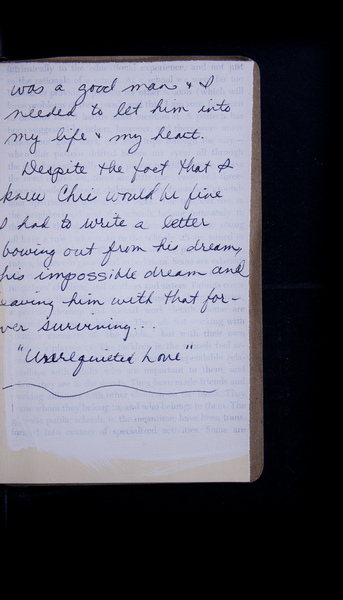 was a good man & I
needed to let him into
my life & my heart.
Despite the fact that I
knew Chri would be fine
I had to write a letter
bowing out from his dream,
his impossible dream and
eaving him with that for-
ver surviving...
"Unrequieted Love"